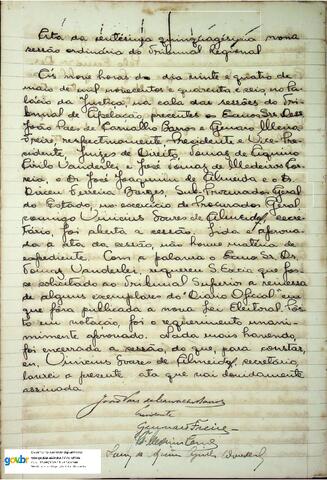 Ata da centésima quinquagésima nona
sessão ordinária do Tribunal Regional
Ás nove horas do dia vinte e quatro de
maio de mil novecentos e quarenta e seis, no Pa-
lácio da Justiça, na sala das sessões do Tri-
bunal de Apelação, presentes os Exmos. Srs. Des.
João Paes de Carvalho Barros e Genaro
Freire, respectivamente Presidente e Vice-Pre-
sidente, Juizes de Direito, Tomaz de Aquino
Cirilo Wanderley, José Tomaz de Medeiros Cor-
reia, e Dr. José Joaquim de Almeida e o Dr.
Dirceu Ferreira Borges, Sub-Procurador Geral
do Estado, no exercicio de Procurador Geral,
comigo Vinicius Soares de Almeida, secre-
tário, foi aberta a sessão. Lida e aprova-
da a ata da sessão, não houve matéria de
expediente. Com a palavra o Exmo. Sr. Dr.
Tomaz Wanderley, requereu S. Excia. que fos-
se solicitado ao Tribunal Superior a remessa
de alguns exemplares do "Diário Oficial" em
que fôra publicada a nova Lei Eleitoral. Pos-
to em votação, foi o requerimento unani-
mimente aprovado. Nada mais havendo,
foi encerrada a sessão, do que, para constar,
eu, Vinicius Soares de Almeida, secretário,
lavrei a presente ata que vai devidamente
assinada.
João Paes de Carvalho Barros
Presidente
Gennaro Freire
gov.br